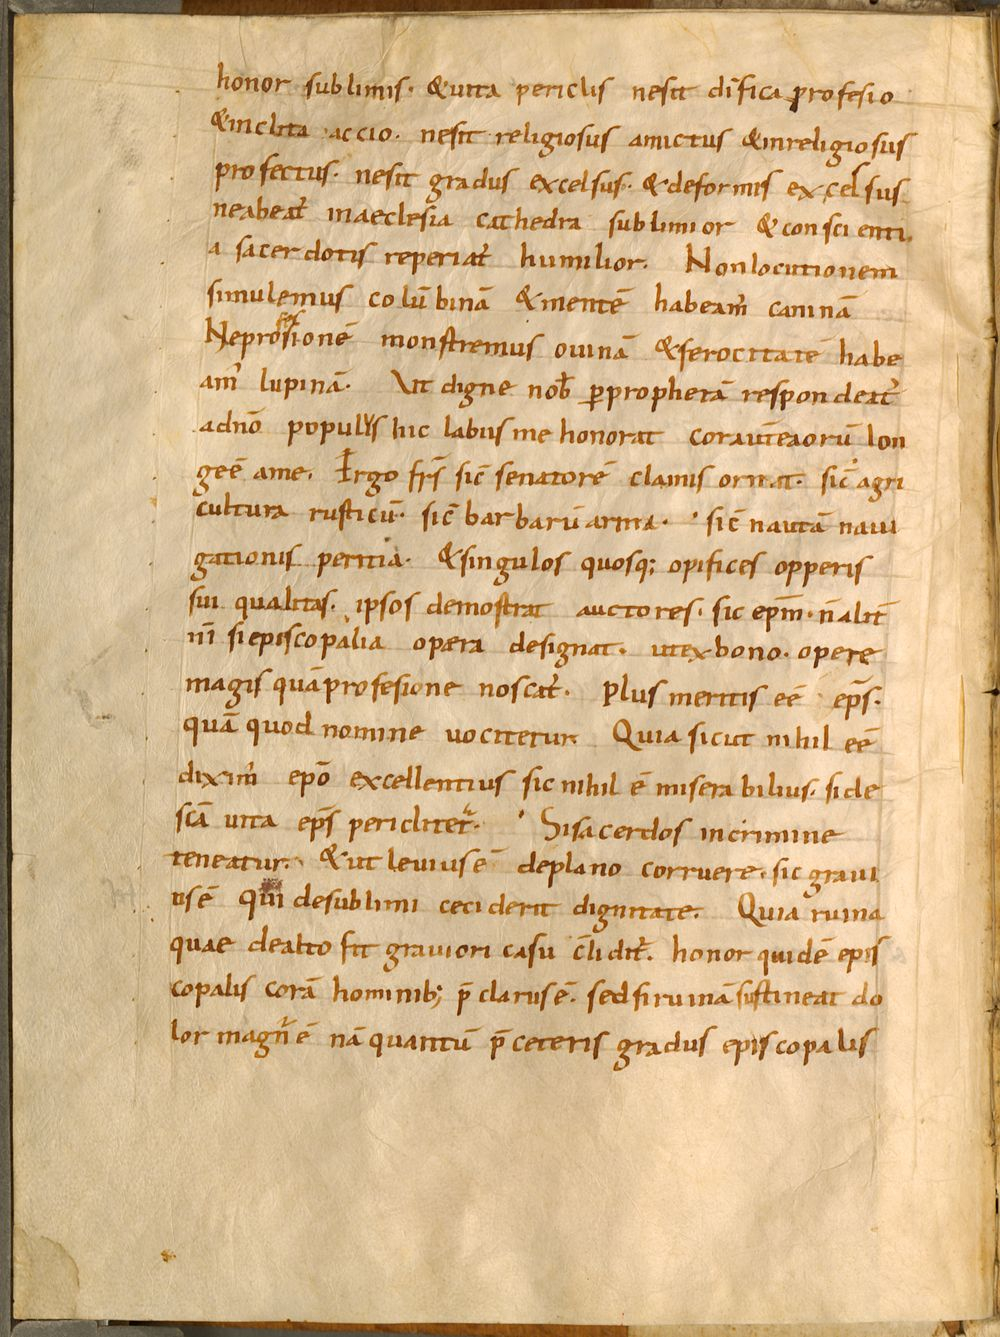 honor sublimis· & uita periclis nesit dīfica profesio
& inclita accio· nesit religiosus amictus & inreligiosus
profectus· nesit gradus excelsus· & deformis excelsus
neabeat᷑ inaeclesia cathedra sublimior & conscienti
a sacerdotis reperiat᷑ humilior. Nonlocutionem
simulemus colūbinā & mentē habeam᷑ caninā
Neprofesionē monstremus ouinā & ferocitatē habe
am᷑ lupinā· Ut digne nob̄ ꝑprophetā respondeat᷑
adnō populus hic labiis me honorat cor autēaorū lon
geē ame. Ergo frs̄ sic̄ senatorē clamis ornat· sic̄ agri
cultura rusticū· sic̄ barbarū arma· sic̄ nautā naui
gationis peritia· & singulos quosq; opifices opperis
sui qualitas· ipsos demostrat auctores· sic epm̄· n̄ alit̄
nī si episcopalia opera designat· utexbono· opere
magis quāprofesione noscat᷑· plus meritis eē eps̄·
quā quod nomine uocitetur· Quia sicut nihil eē
dixim᷑ epō excellentius sic nihil ē miserabilius· side
scā uita eps̄ periclitet᷑· Sisacerdos incrimine
teneatur· & ut leuiusē deplano corruere· sic graui
usē qui desublimi ceciderit dignitate. Quia ruina
quae dealto fit grauiori casu c̄lidit᷑. honor quidē epis
copalis corā hominib; p̄clarusē· sed si ruinā sustineat do
lor magn᷑ ē nā quantū p̄ceteris gradus episcopalis